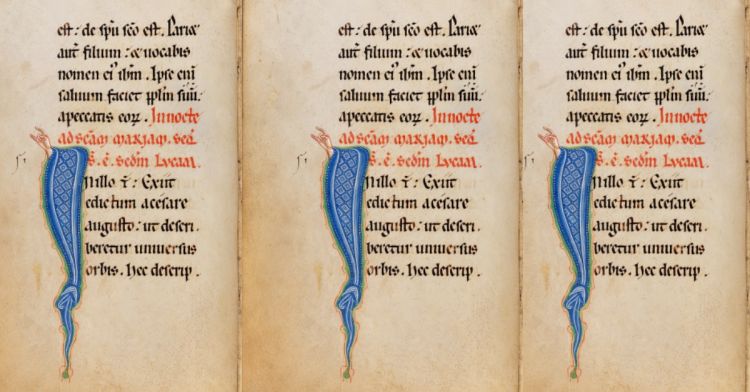 est: de spū sc̄o est. Pariet
aut̄ filium: & uocabis
nomen ei᾽ ih̄m. Ipse eni̅
saluum faciet pplm̄ suū:
apeccatis eoꝝ. In nocte
ad sc̄am mariam. seq̄
S. e̅. sedm̄ lucam.
In illo t̄: Exiit
edictum acesare
augusto: ut descri
beretur uniuersus
orbis. hec descrip
est: de spū sc̄o est. Pariet
aut̄ filium: & uocabis
nomen ei᾽ ih̄m. Ipse eni̅
saluum faciet pplm̄ suū:
apeccatis eoꝝ. In nocte
ad sc̄am mariam. seq̄
S. e̅. sedm̄ lucam.
In illo t̄: Exiit
edictum acesare
augusto: ut descri
beretur uniuersus
orbis. hec descrip
est: de spū sc̄o est. Pariet
aut̄ filium: & uocabis
nomen ei᾽ ih̄m. Ipse eni̅
saluum faciet pplm̄ suū:
apeccatis eoꝝ. In nocte
ad sc̄am mariam. seq̄
S. e̅. sedm̄ lucam.
In illo t̄: Exiit
edictum acesare
augusto: ut descri
beretur uniuersus
orbis. hec descrip